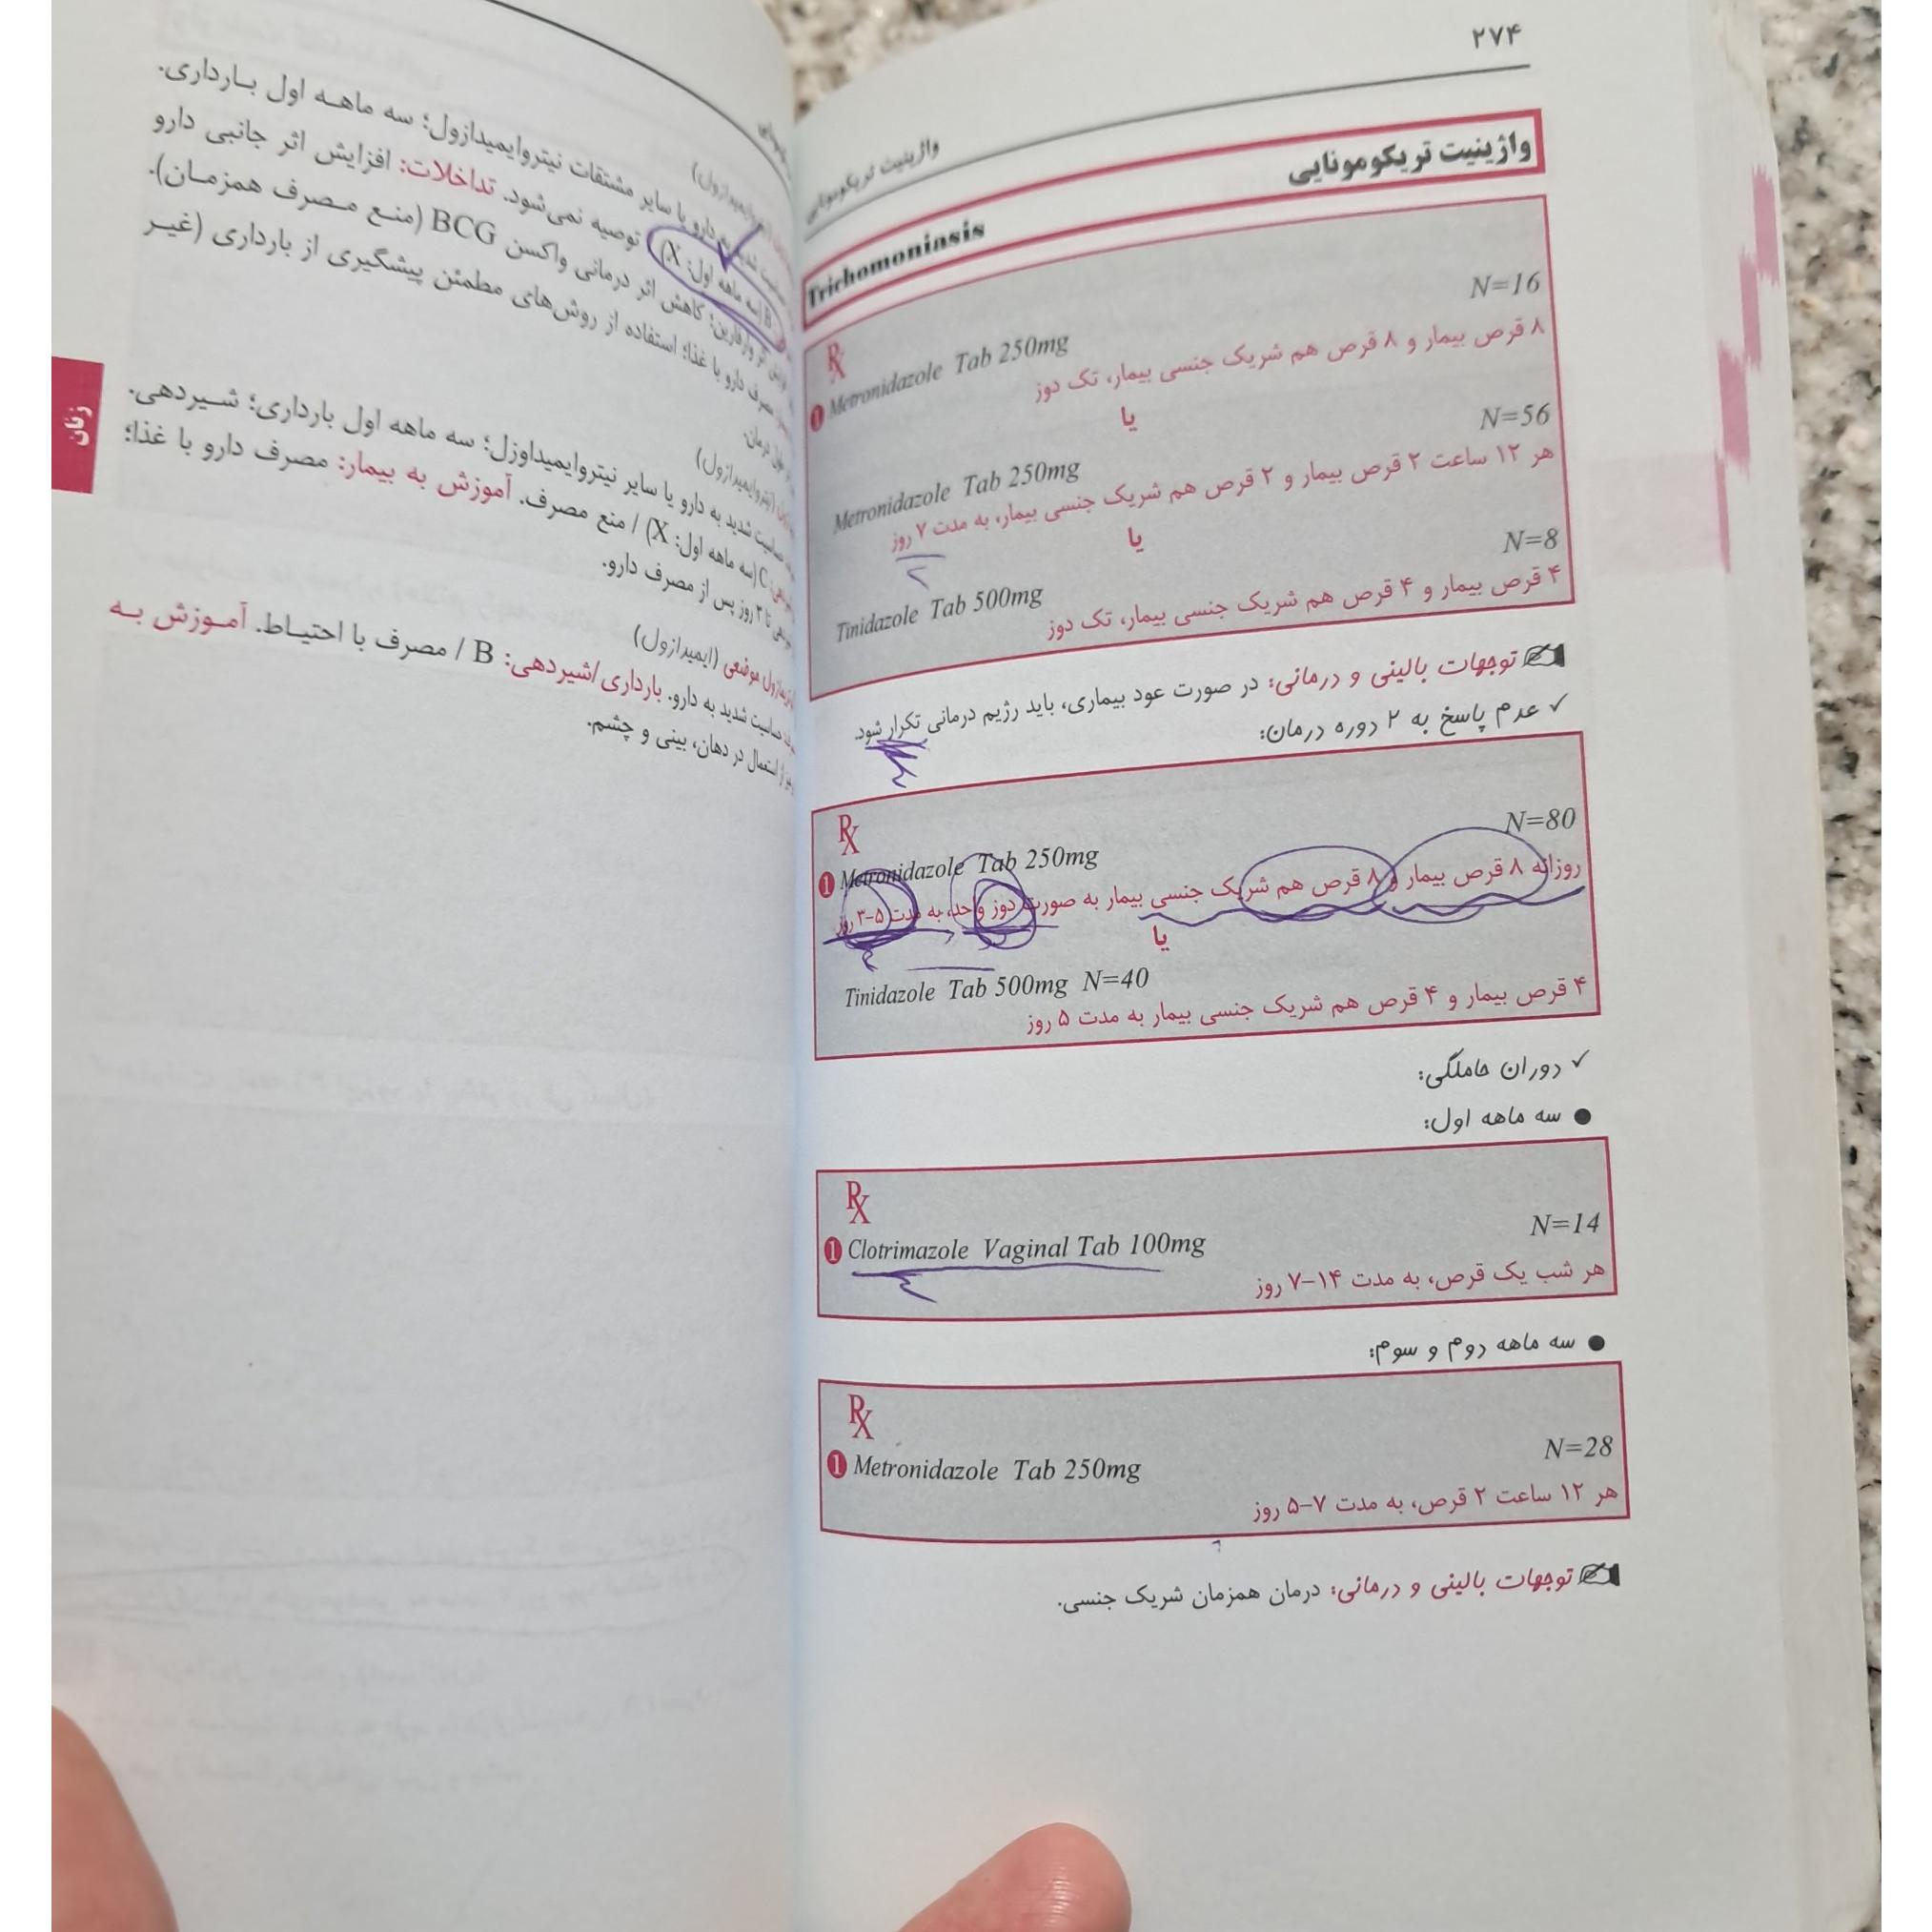 ۲۷۴
واژینیت تریکومونایی
واژینیت تریکومونایی
Trichomoniasis
Rx
1 Metronidazole Tab 250mg N=16
۸ قرص بیمار و ۸ قرص هم شریک جنسی بیمار، تک دوز
یا
Metronidazole Tab 250mg N=56
هر ۱۲ ساعت ۲ قرص بیمار و ۲ قرص هم شریک جنسی بیمار، به مدت ۷ روز
یا
Tinidazole Tab 500mg N=8
۴ قرص بیمار و ۴ قرص هم شریک جنسی بیمار، تک دوز
توجهات بالینی و درمانی: در صورت عود بیماری، باید رژیم درمانی تکرار شود.
✓ عدم پاسخ به ۲ دوره درمان:
Rx
1 Metronidazole Tab 250mg N=80
روزانه ۸ قرص بیمار و ۸ قرص هم شریک جنسی بیمار به صورت دوز واحد، به مدت ۵-۳ روز
یا
Tinidazole Tab 500mg N=40
۴ قرص بیمار و ۴ قرص هم شریک جنسی بیمار به مدت ۵ روز
✓ دوران حاملگی:
● سه ماهه اول:
Rx
1 Clotrimazole Vaginal Tab 100mg N=14
هر شب یک قرص، به مدت ۱۴-۷ روز
● سه ماهه دوم و سوم:
Rx
1 Metronidazole Tab 250mg N=28
هر ۱۲ ساعت ۲ قرص، به مدت ۷-۵ روز
توجهات بالینی و درمانی: درمان همزمان شریک جنسی.
دارو یا سایر مشتقات نیتروایمیدازول؛ سه ماهه اول بارداری.
B (سه ماهه اول: X) توصیه نمی‌شود. تداخلات: افزایش اثر جانبی دارو
وارفارین؛ کاهش اثر درمانی واکسن BCG (منع مصرف همزمان).
مصرف دارو با غذا؛ استفاده از روش‌های مطمئن پیشگیری از بارداری (غیر
درمان.
(نیتروایمیدازول)
حساسیت شدید به دارو یا سایر نیتروایمیداوزل؛ سه ماهه اول بارداری؛ شیردهی.
C (سه ماهه اول: X) / منع مصرف. آموزش به بیمار: مصرف دارو با غذا؛
تا ۳ روز پس از مصرف دارو.
موضعی (ایمیدازول)
حساسیت شدید به دارو. بارداری/شیردهی: B / مصرف با احتیاط. آموزش به
استعمال در دهان، بینی و چشم.
زنان